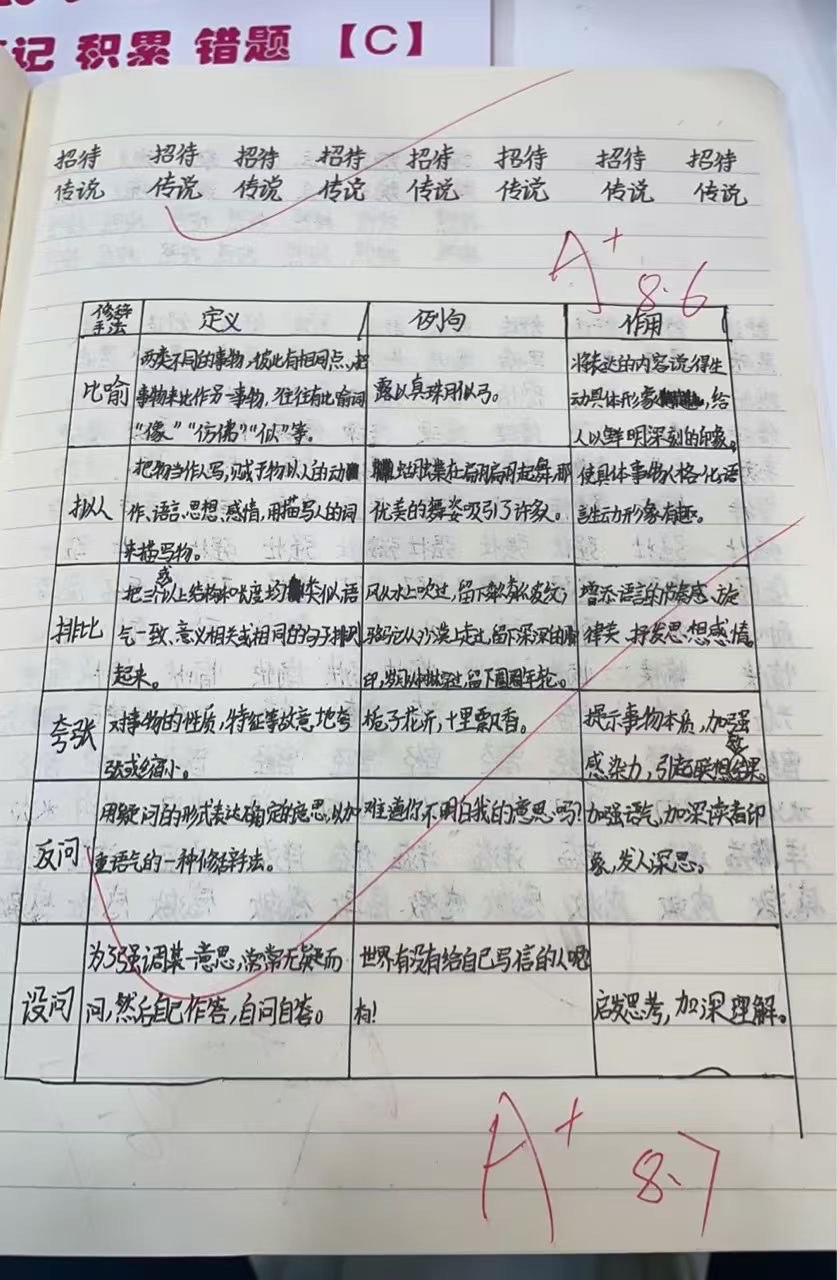 记 积累 错题 【C】
招待 招待 招待 招待 招待 招待 招待 招待
传说 传说 传说 传说 传说 传说 传说 传说
A+ 8.6
修辞手法 定义 例句 作用
比喻
两类不同的事物,彼此有相同点,把
事物来比作另一事物,往往有比喻词
“像”“仿佛”“似”等。
露似真珠月似弓。
将表达的内容说得生
动具体形象,给
人以鲜明深刻的印象。
拟人
把物当作人写,赋于物以人的动
作、语言、思想、感情,用描写人的词
来描写物。
蝴蝶在翩翩起舞,那
优美的舞姿吸引了许多人。
使具体事物人格化语
言生动形象有趣。
排比
把三个或以上结构和长度均类似语
气一致、意义相关或相同的句子排列
起来。
风从水上吹过,留下粼粼波纹;
骆驼从沙漠上走过,留下深深的脚
印,留下圈圈年轮。
增添语言的节奏感、旋
律美、抒发思想感情。
夸张
对事物的性质,特征等故意地夸
张或缩小。
栀子花开,十里飘香。
提示事物本质,加强
感染力,引起联想效果。
反问
用疑问的形式表达确定的意思,以加
重语气的一种修辞手法。
难道你不明白我的意思吗?
加强语气,加深读者印
象,发人深思。
设问
为了强调某一意思,常常无疑而
问,然后自己作答,自问自答。
世界有没有给自己写信的人呢
有!
启发思考,加深理解。
A+ 8.7